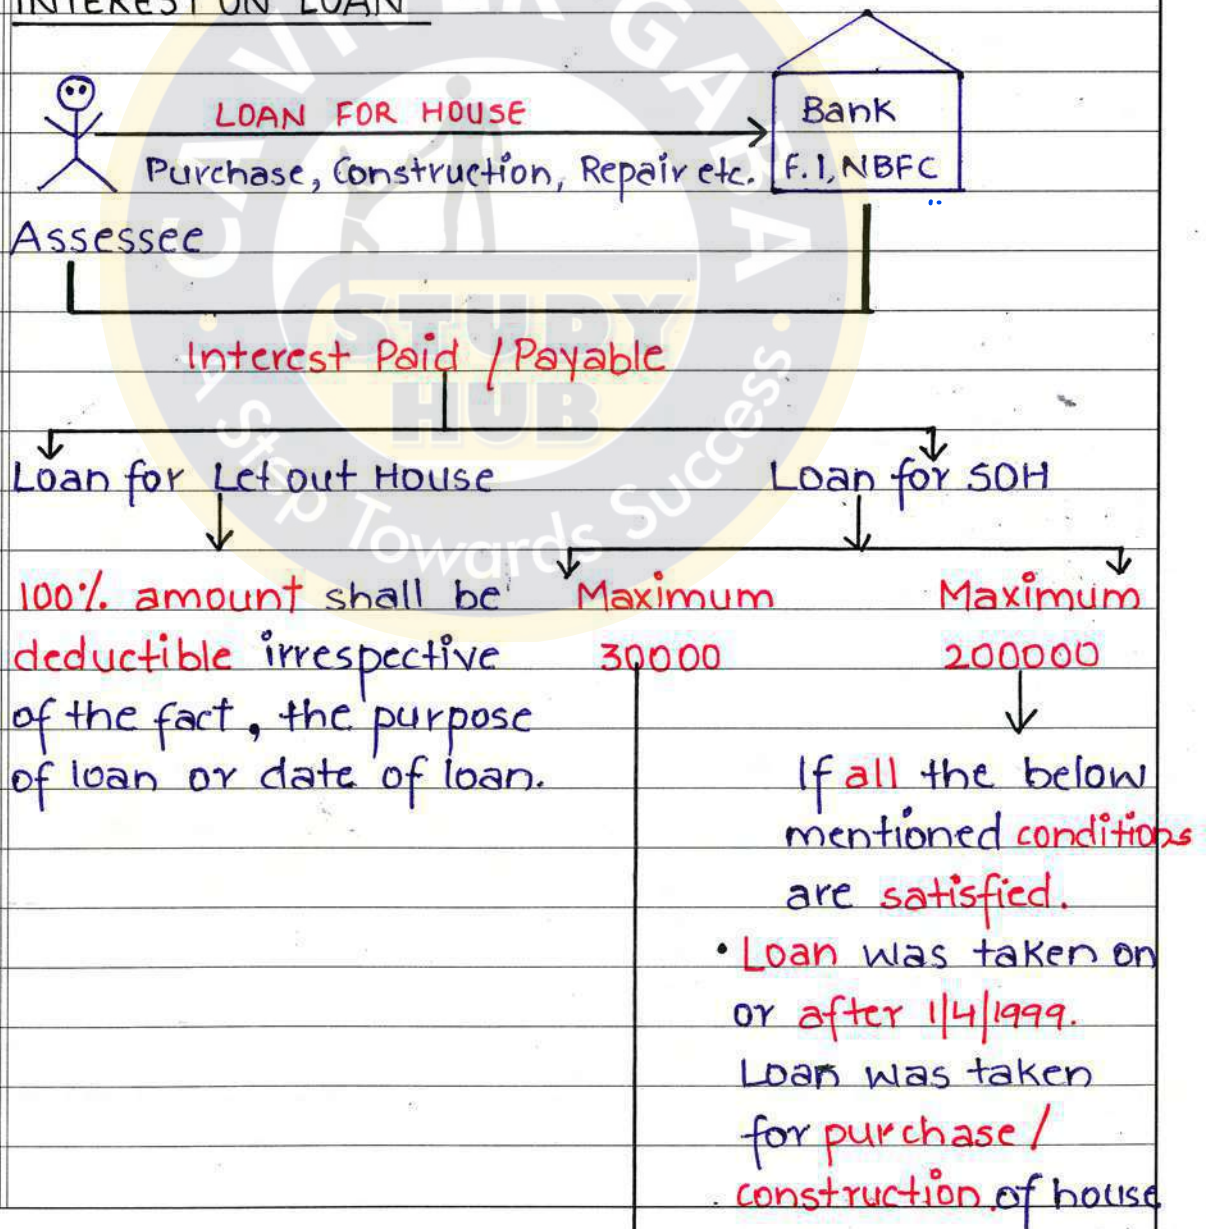 INTEREST ON LOAN
LOAN FOR HOUSE
Purchase, Construction, Repair etc.
Bank
F.I, NBFC
Assessee
Interest Paid / Payable
Loan for Let out House
Loan for SOH
100% amount shall be
deductible irrespective
of the fact, the purpose
of loan or date of loan.
Maximum
30000
Maximum
200000
If all the below
mentioned conditions
are satisfied.
• Loan was taken on
or after 1/4/1999.
Loan was taken
for purchase /
construction of house
CA VIVEK GABA
STUDY
HUB
A Step Towards Success